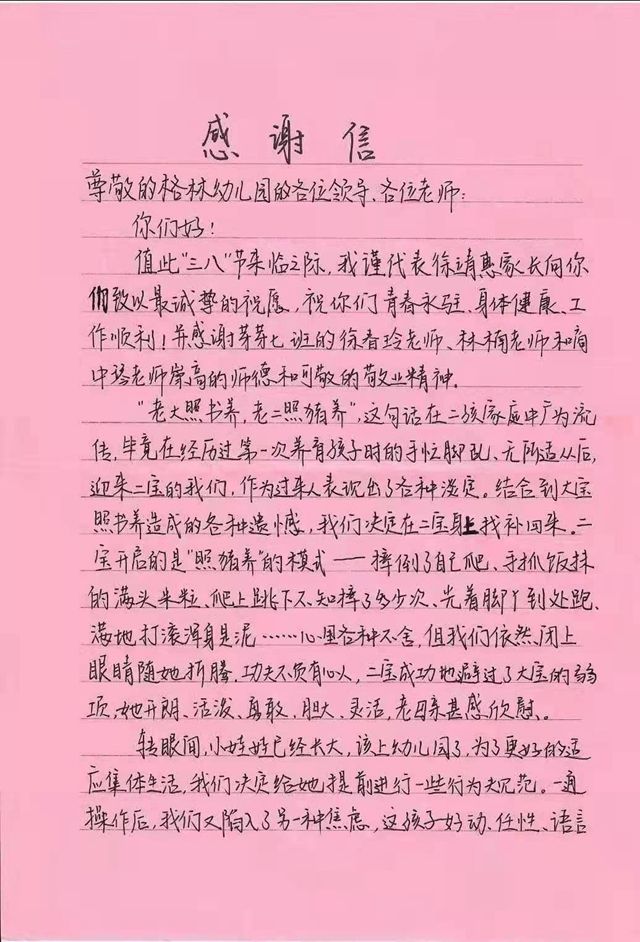 感谢信
尊敬的格林幼儿园的各位领导、各位老师：
你们好！
值此“三八”节来临之际，我谨代表徐靖惠家长向你
们致以最诚挚的祝愿，祝你们青春永驻、身体健康、工
作顺利！并感谢芽芽七班的徐春玲老师、林楠老师和商
中琴老师崇高的师德和可敬的敬业精神。
“老大照书养，老二照猪养”，这句话在二孩家庭中广为流
传，毕竟在经历过第一次养育孩子时的手忙脚乱、无所适从后，
迎来二宝的我们，作为过来人表现出了各种淡定。结合到大宝
照书养造成的各种遗憾，我们决定在二宝身上找补回来。二
宝开启的是“照猪养”的模式——摔倒了自己爬、手抓饭抹
的满头米粒、爬上跳下不知摔了多少次、光着脚丫到处跑、
满地打滚浑身是泥……心里各种不舍，但我们依然闭上
眼睛随她折腾，功夫不负有心人，二宝成功地避过了大宝的弱
项，她开朗、活泼、勇敢、胆大、灵活，老母亲甚感欣慰。
转眼间，小娃娃已经长大，该上幼儿园了，为了更好的适
应集体生活，我们决定给她提前进行一些行为规范。一通
操作后，我们又陷入了另一种焦虑，这孩子好动、任性、语言